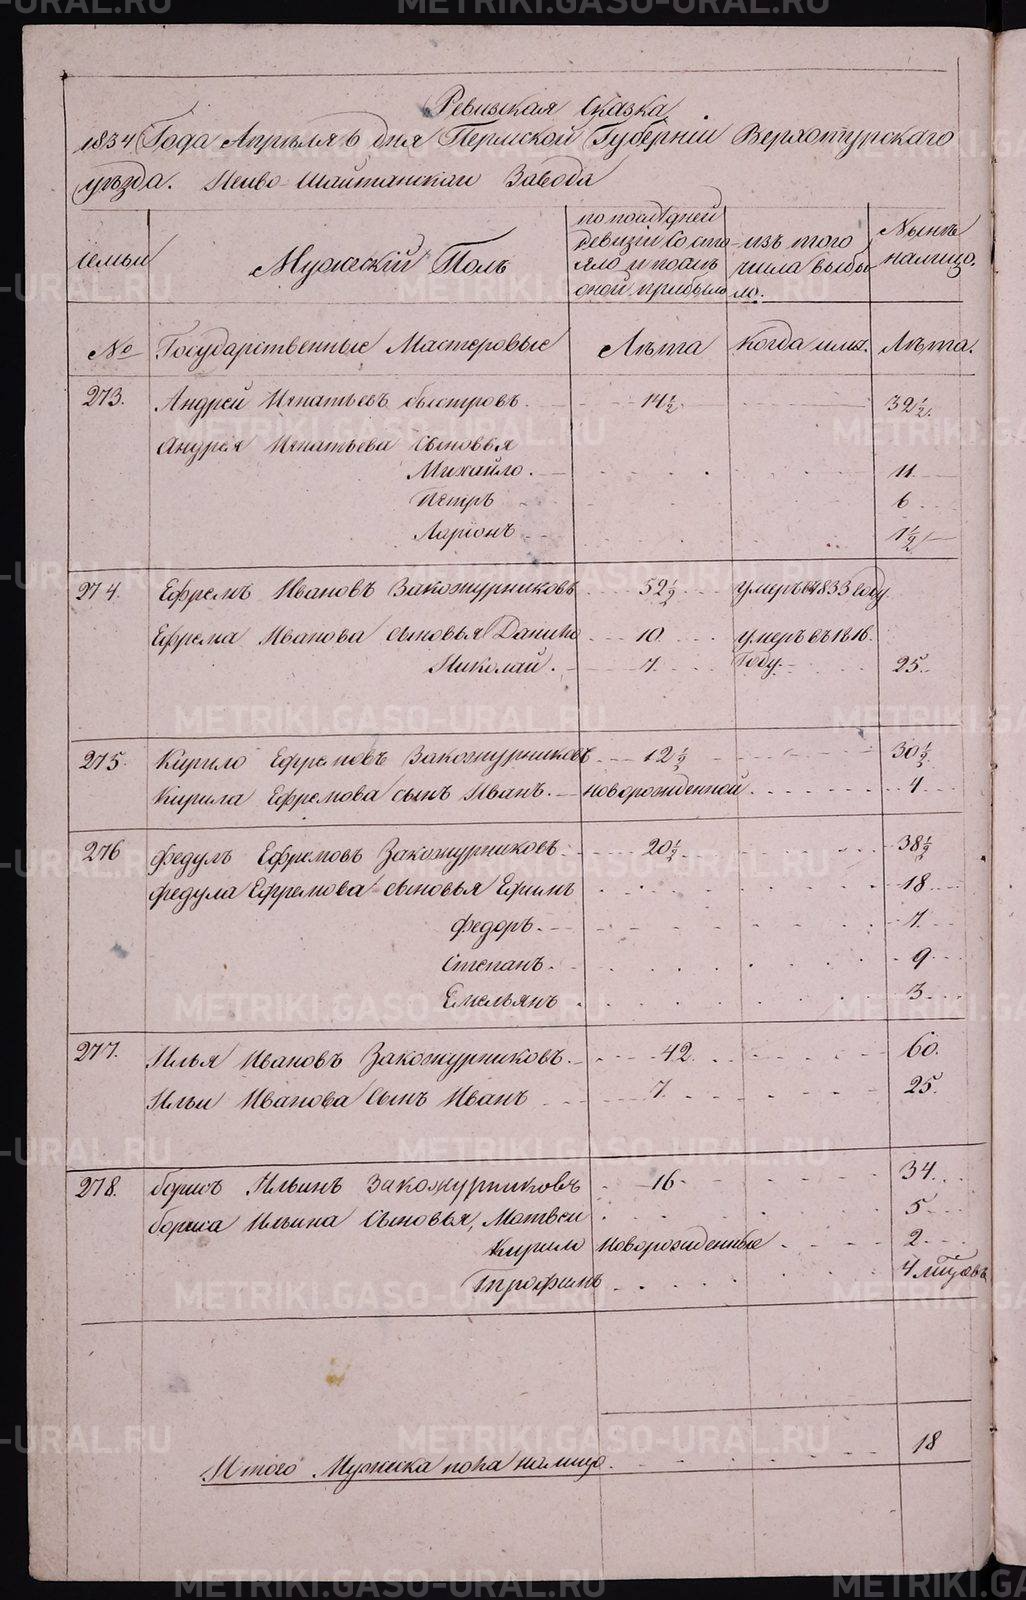 Ревизская Сказка
1834 Года Апреля 6 дня Пермской Губерніи Верхотурскаго
уѣзда. Нейво-Шайтанскаго Завода
семьи
Мужескій Полъ
по последней
ревизіи состо-
яло и послѣ
оной прибыло
изъ того
числа выбы-
ло.
Нынѣ
налицо.
№
Государственные Мастеровые
Лѣта
когда имя.
Лѣта.
273. Андрей Игнатьевъ быстровъ 14½ 32½
Андрея Игнатьева Сыновья
Михайло 11
Петръ 6
Ларіонъ 1½
274. Ефремъ Ивановъ Закожурниковъ 52½ умеръ 1833 году
Ефрема Иванова сыновья Данило 10 умеръ въ 1816.
Николай. 7 Году 25
275. Кирило Ефремовъ Закожурниковъ 12½ 30½
Кирила Ефремова сынъ Иванъ новорожденной 4
276 Федулъ Ефремовъ Закожурниковъ 20½ 38½
Федула Ефремова сыновья Ефимъ 18
Федоръ 7
Степанъ 9
Емельянъ 3
277. Илья Ивановъ Закожурниковъ 42 60.
Ильи Иванова Сынъ Иванъ 7 25.
278. борисъ Ильинъ Закожурниковъ 16 34
бориса Ильина Сыновья, Матвей 5
Кирило Новорожденные 2
Трофимъ 4 мцовъ
Итого Мужеска пола налицо 18
METRIKI.GASO-URAL.RU